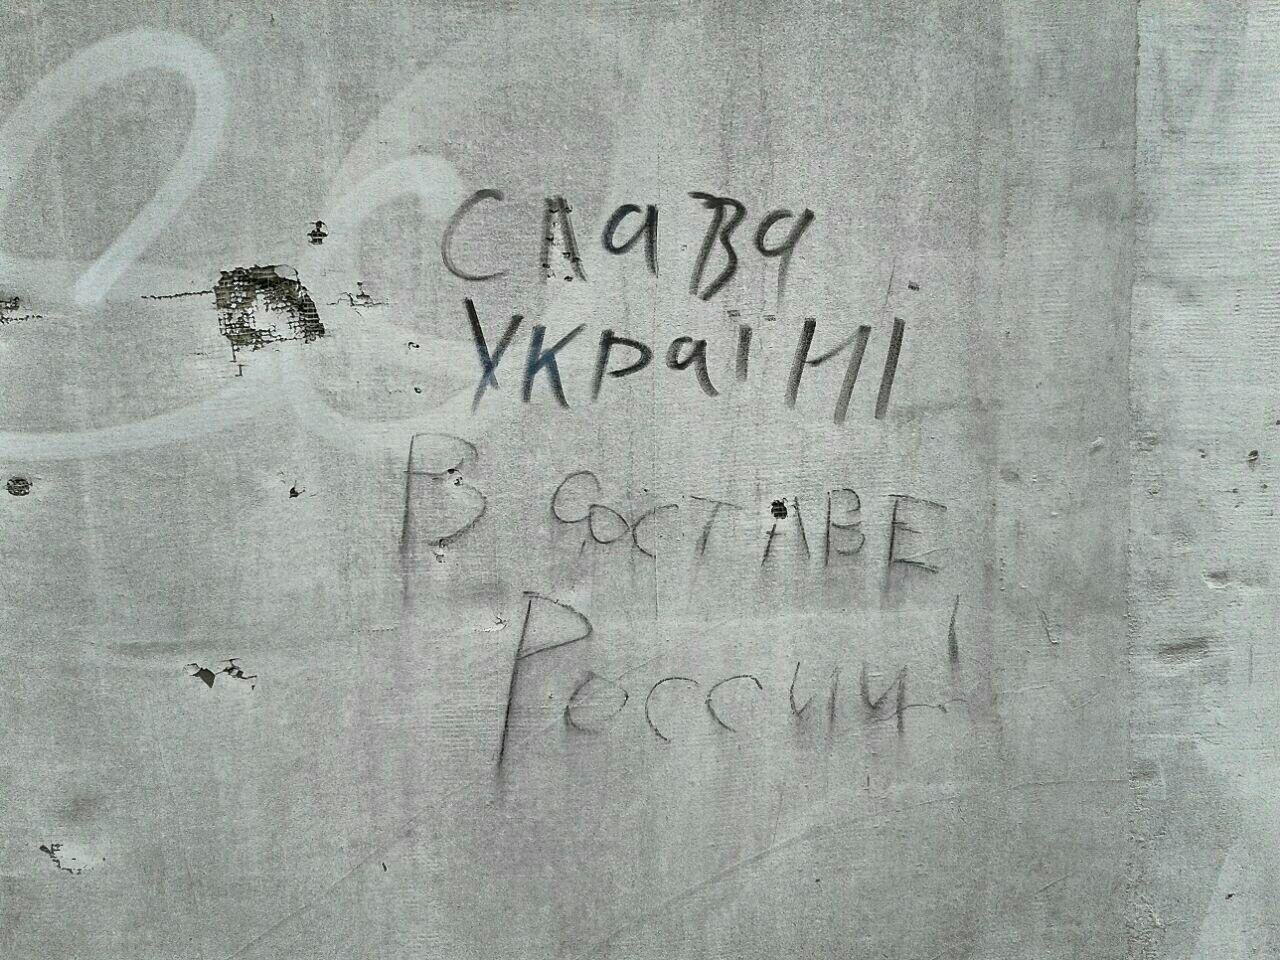 СЛава
Україні
В СОСТАВЕ
России!